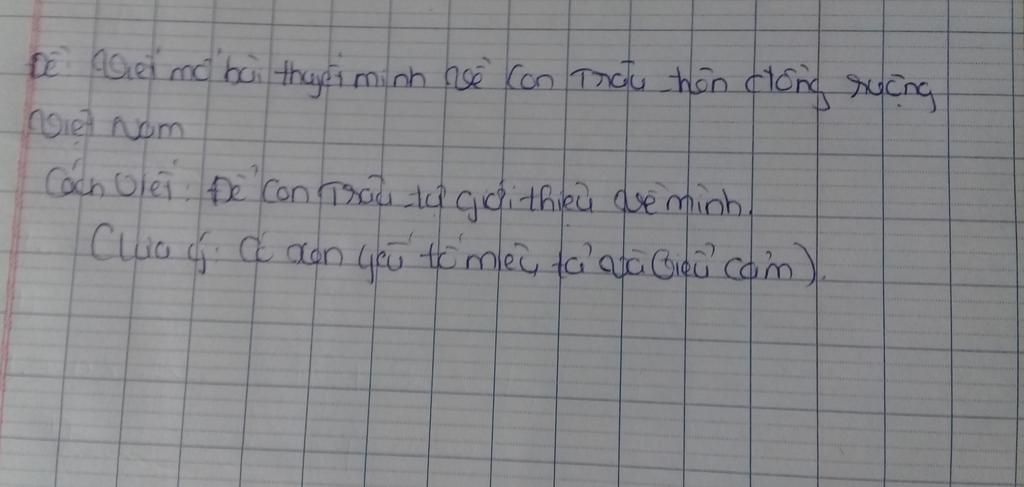 Đề: Viết mở bài thuyết minh về con Trâu trên đồng ruộng
Việt Nam
Cách viết: Để con Trâu tự giới thiệu về mình
(Lưu ý: có đan yếu tố miêu tả và biểu cảm).